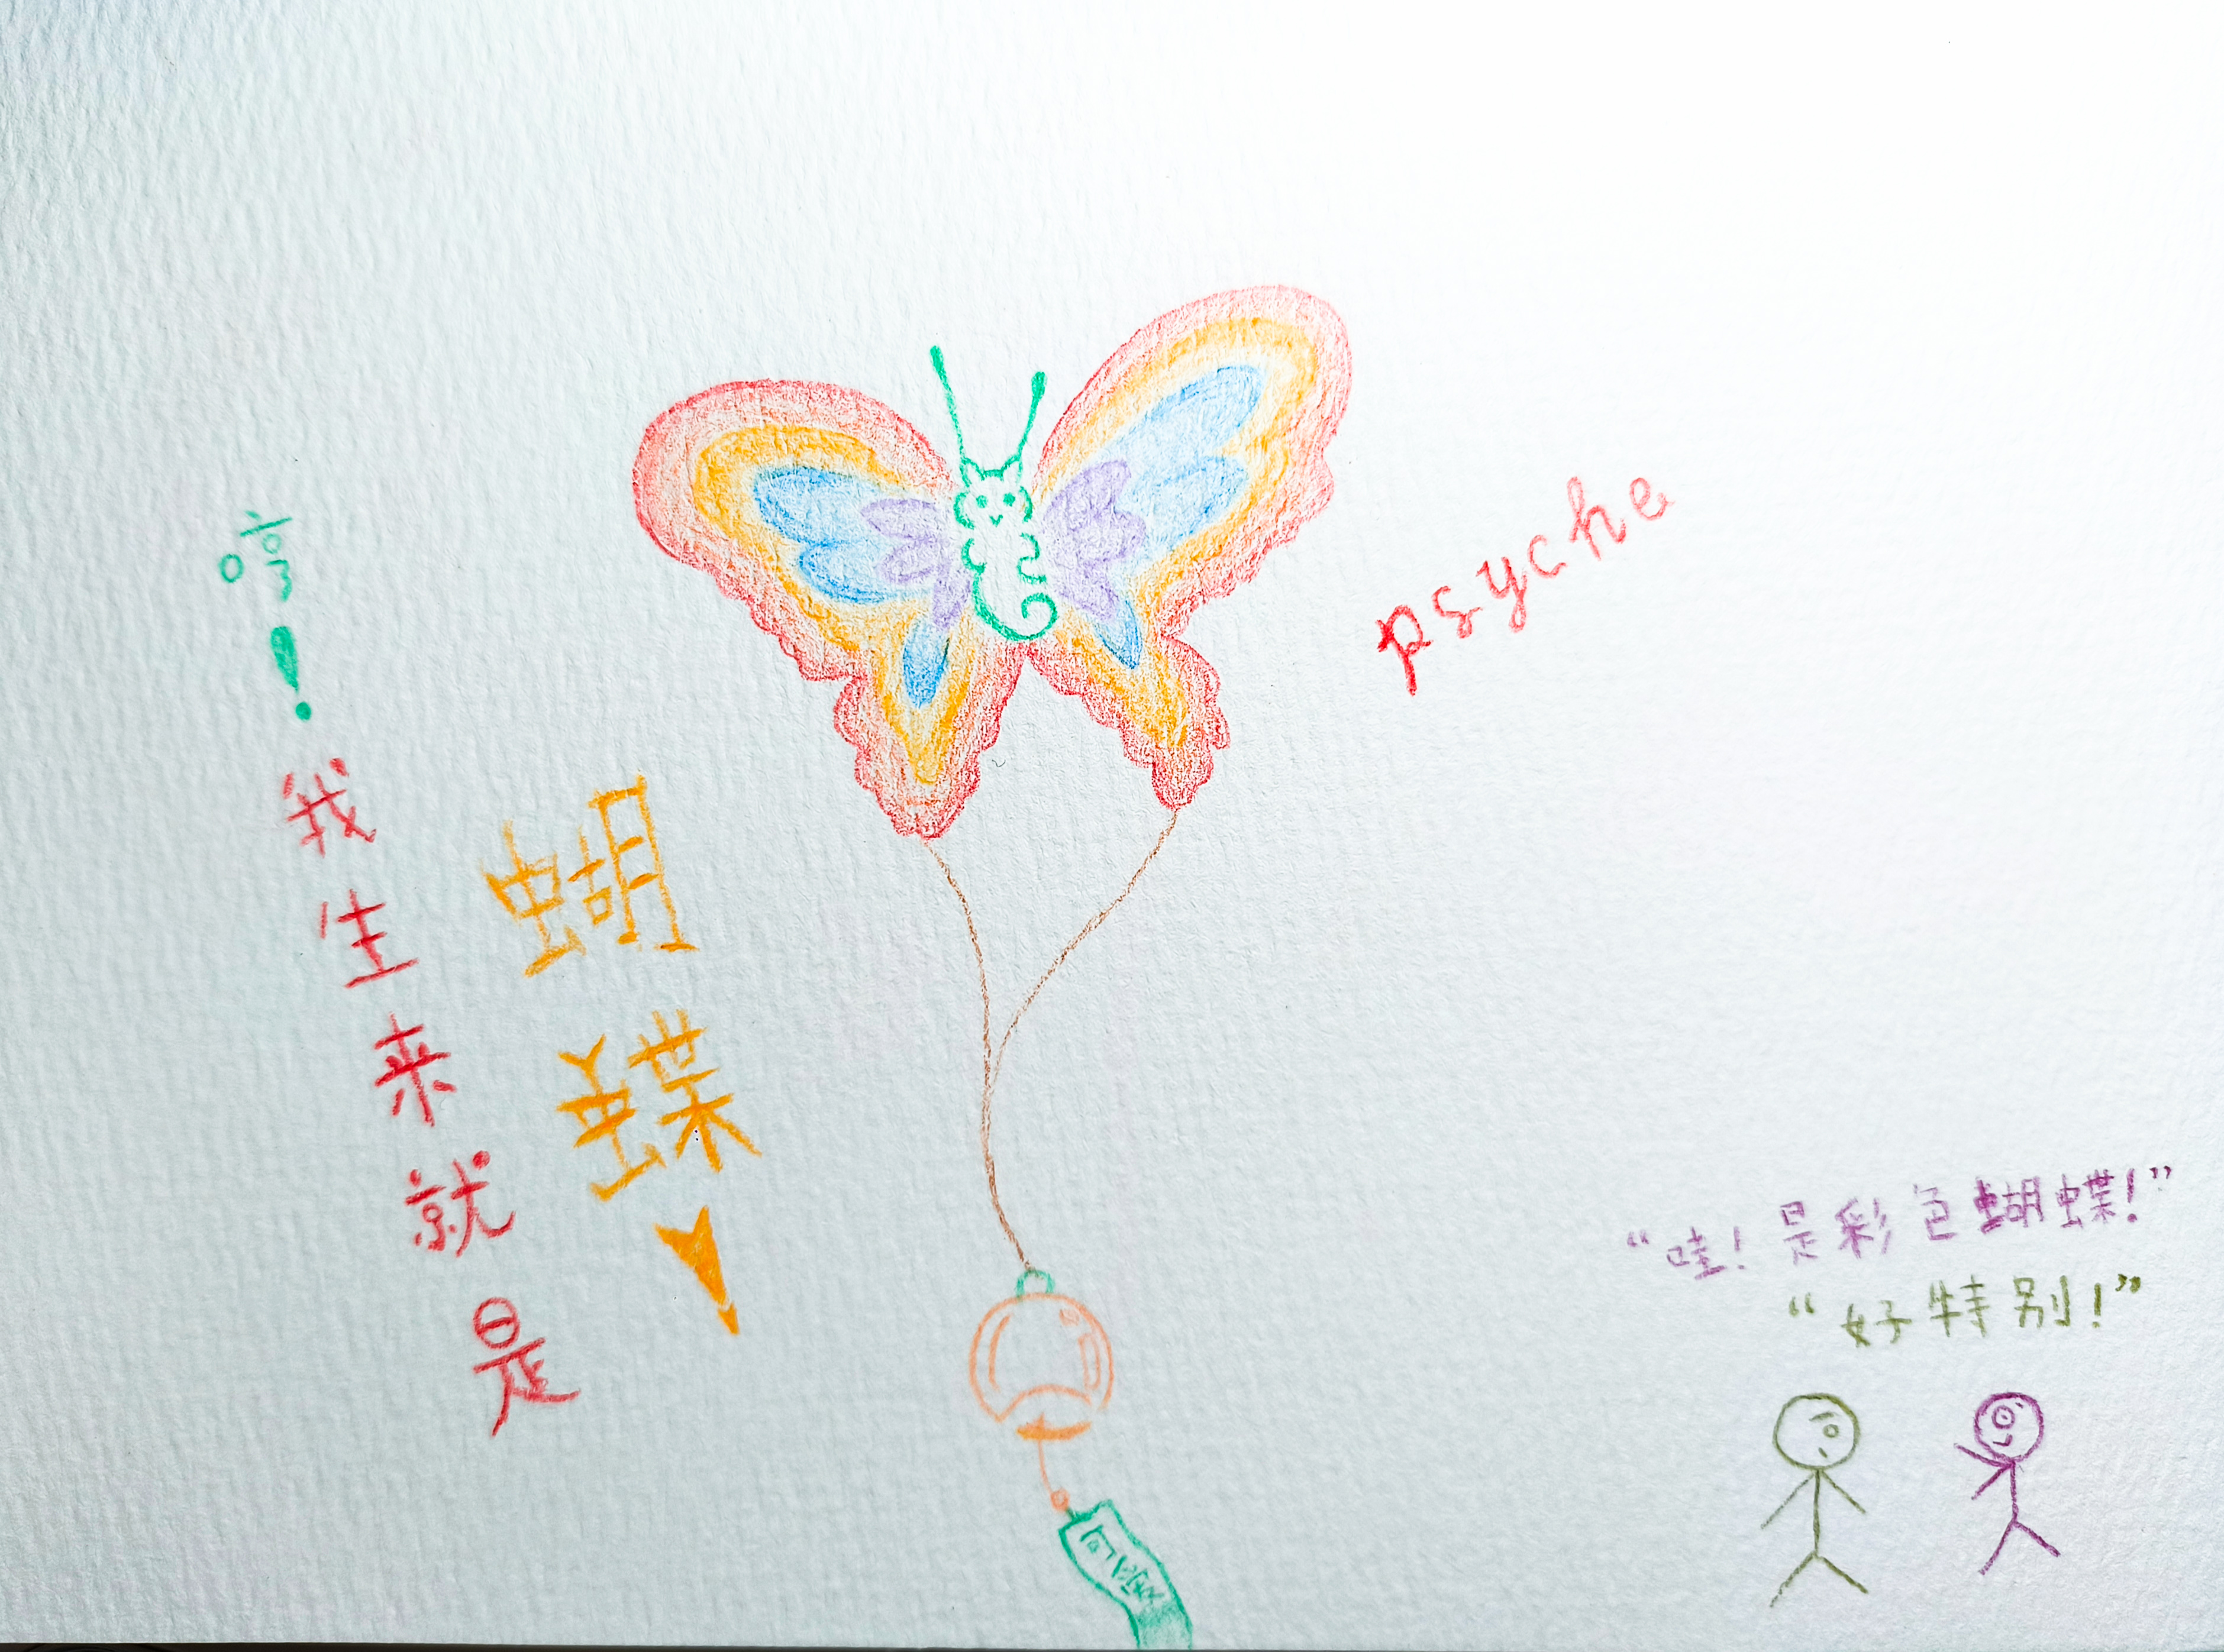 哼!
我生来就是
蝴蝶!
psyche
“哇!是彩色蝴蝶!”
“好特别!”